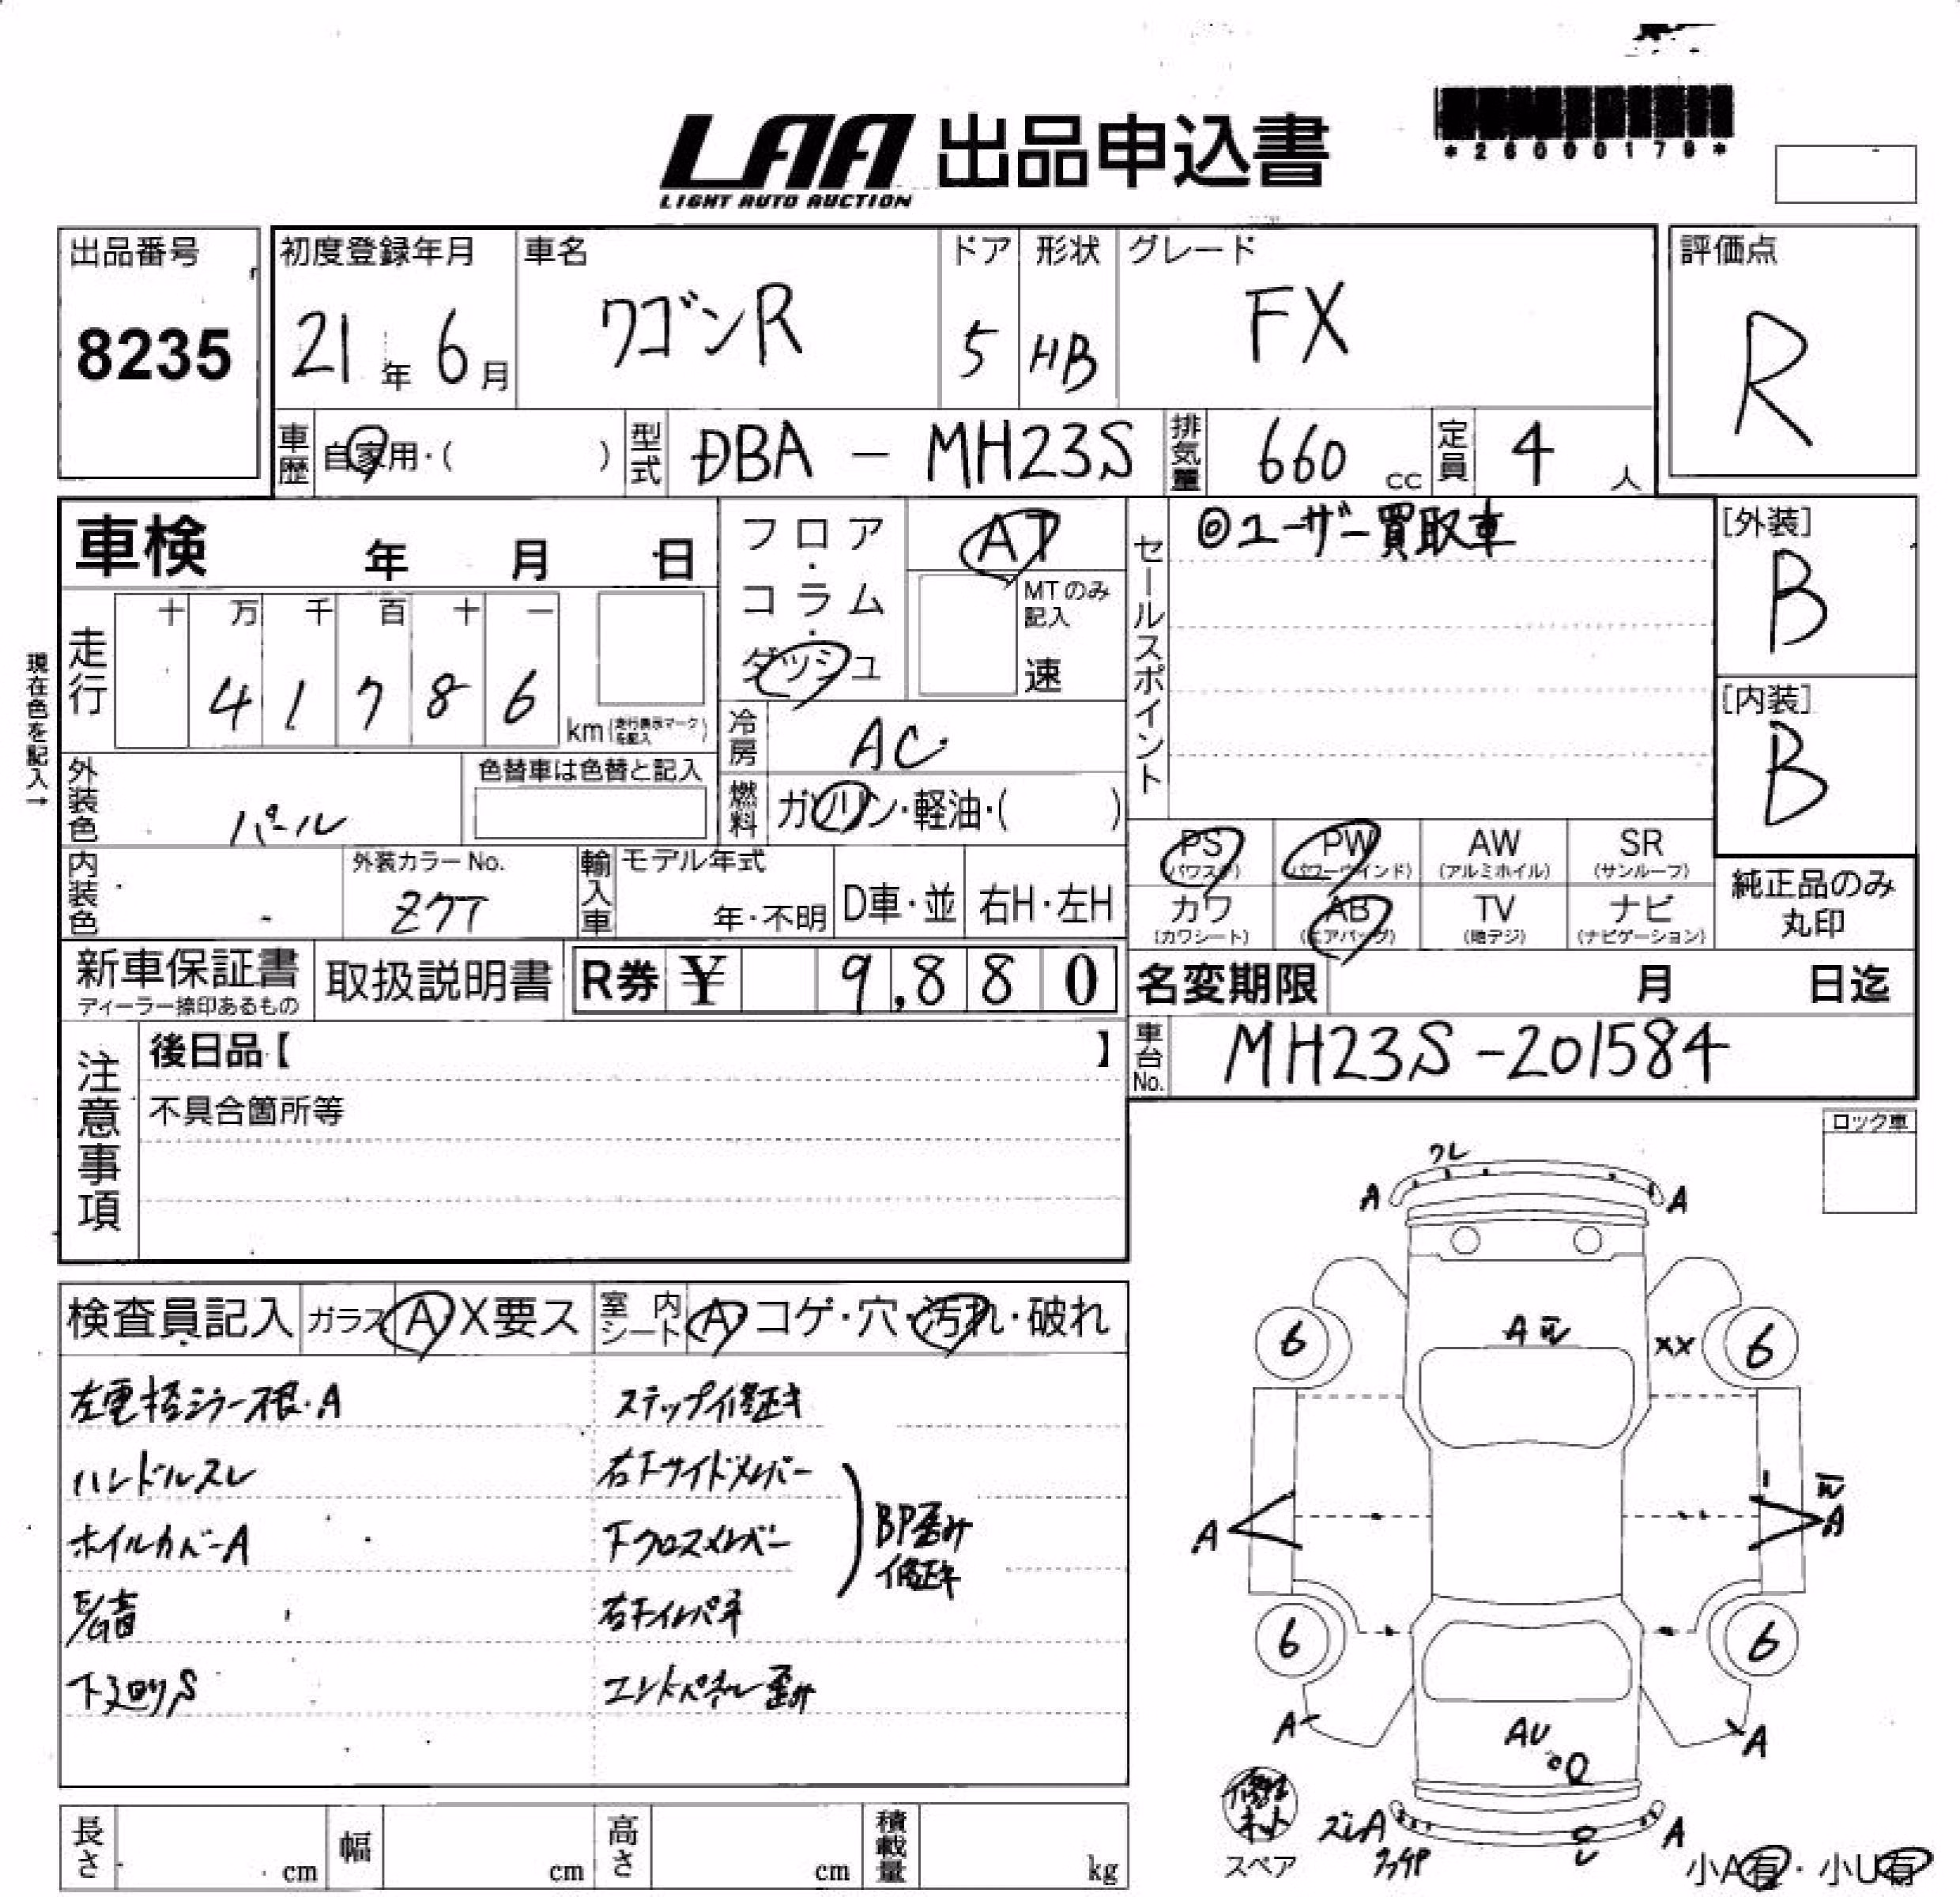 LAA 出品申込書
LIGHT AUTO AUCTION
*26000179*
出品番号
8235
初度登録年月
21年 6月
車名
ワゴンR
ドア
5
形状
HB
グレード
FX
評価点
R
車歴 自家用・( )
型式 DBA - MH23S
排気量 660 cc
定員 4 人
車検 年 月 日
フロア・コラム・ダッシュ
AT
MTのみ記入
速
セールスポイント
◎ユーザー買取車
[外装]
B
[内装]
B
現在色を記入→
走行
十 万 千 百 十 一
4 1 7 8 6
km (走行表示マークを記入)
冷房 AC
燃料 ガソリン・軽油・( )
外装色 パール
色替車は色替と記入
内装色
外装カラーNo.
Z7T
輸入車
モデル年式
年・不明
D車・並
右H・左H
PS (パワステ)
PW (パワーウインド)
AW (アルミホイル)
SR (サンルーフ)
カワ (カワシート)
AB (エアバッグ)
TV (地デジ)
ナビ (ナビゲーション)
純正品のみ丸印
新車保証書
ディーラー捺印あるもの
取扱説明書
R券 ¥ 9,880
名変期限 月 日迄
車台No. MH23S-201584
注意事項
後日品【 】
不具合箇所等
ロック車
検査員記入 ガラス A X要ス 室内シート A コゲ・穴・汚れ・破れ
左電格ミラー根・A
ハンドルスレ
ホイルカバーA
E/G音
下廻りS
ステップ修正キ
右下サイドメンバー
下クロスメンバー
BP歪み
修正キ
エンドパネル歪み
ワレ
A A
A
XX
6 6
A A
6 6
A A
AU
ズレA
A
スペア
小A有・小U有
長さ cm
幅 cm
高さ cm
積載量 kg